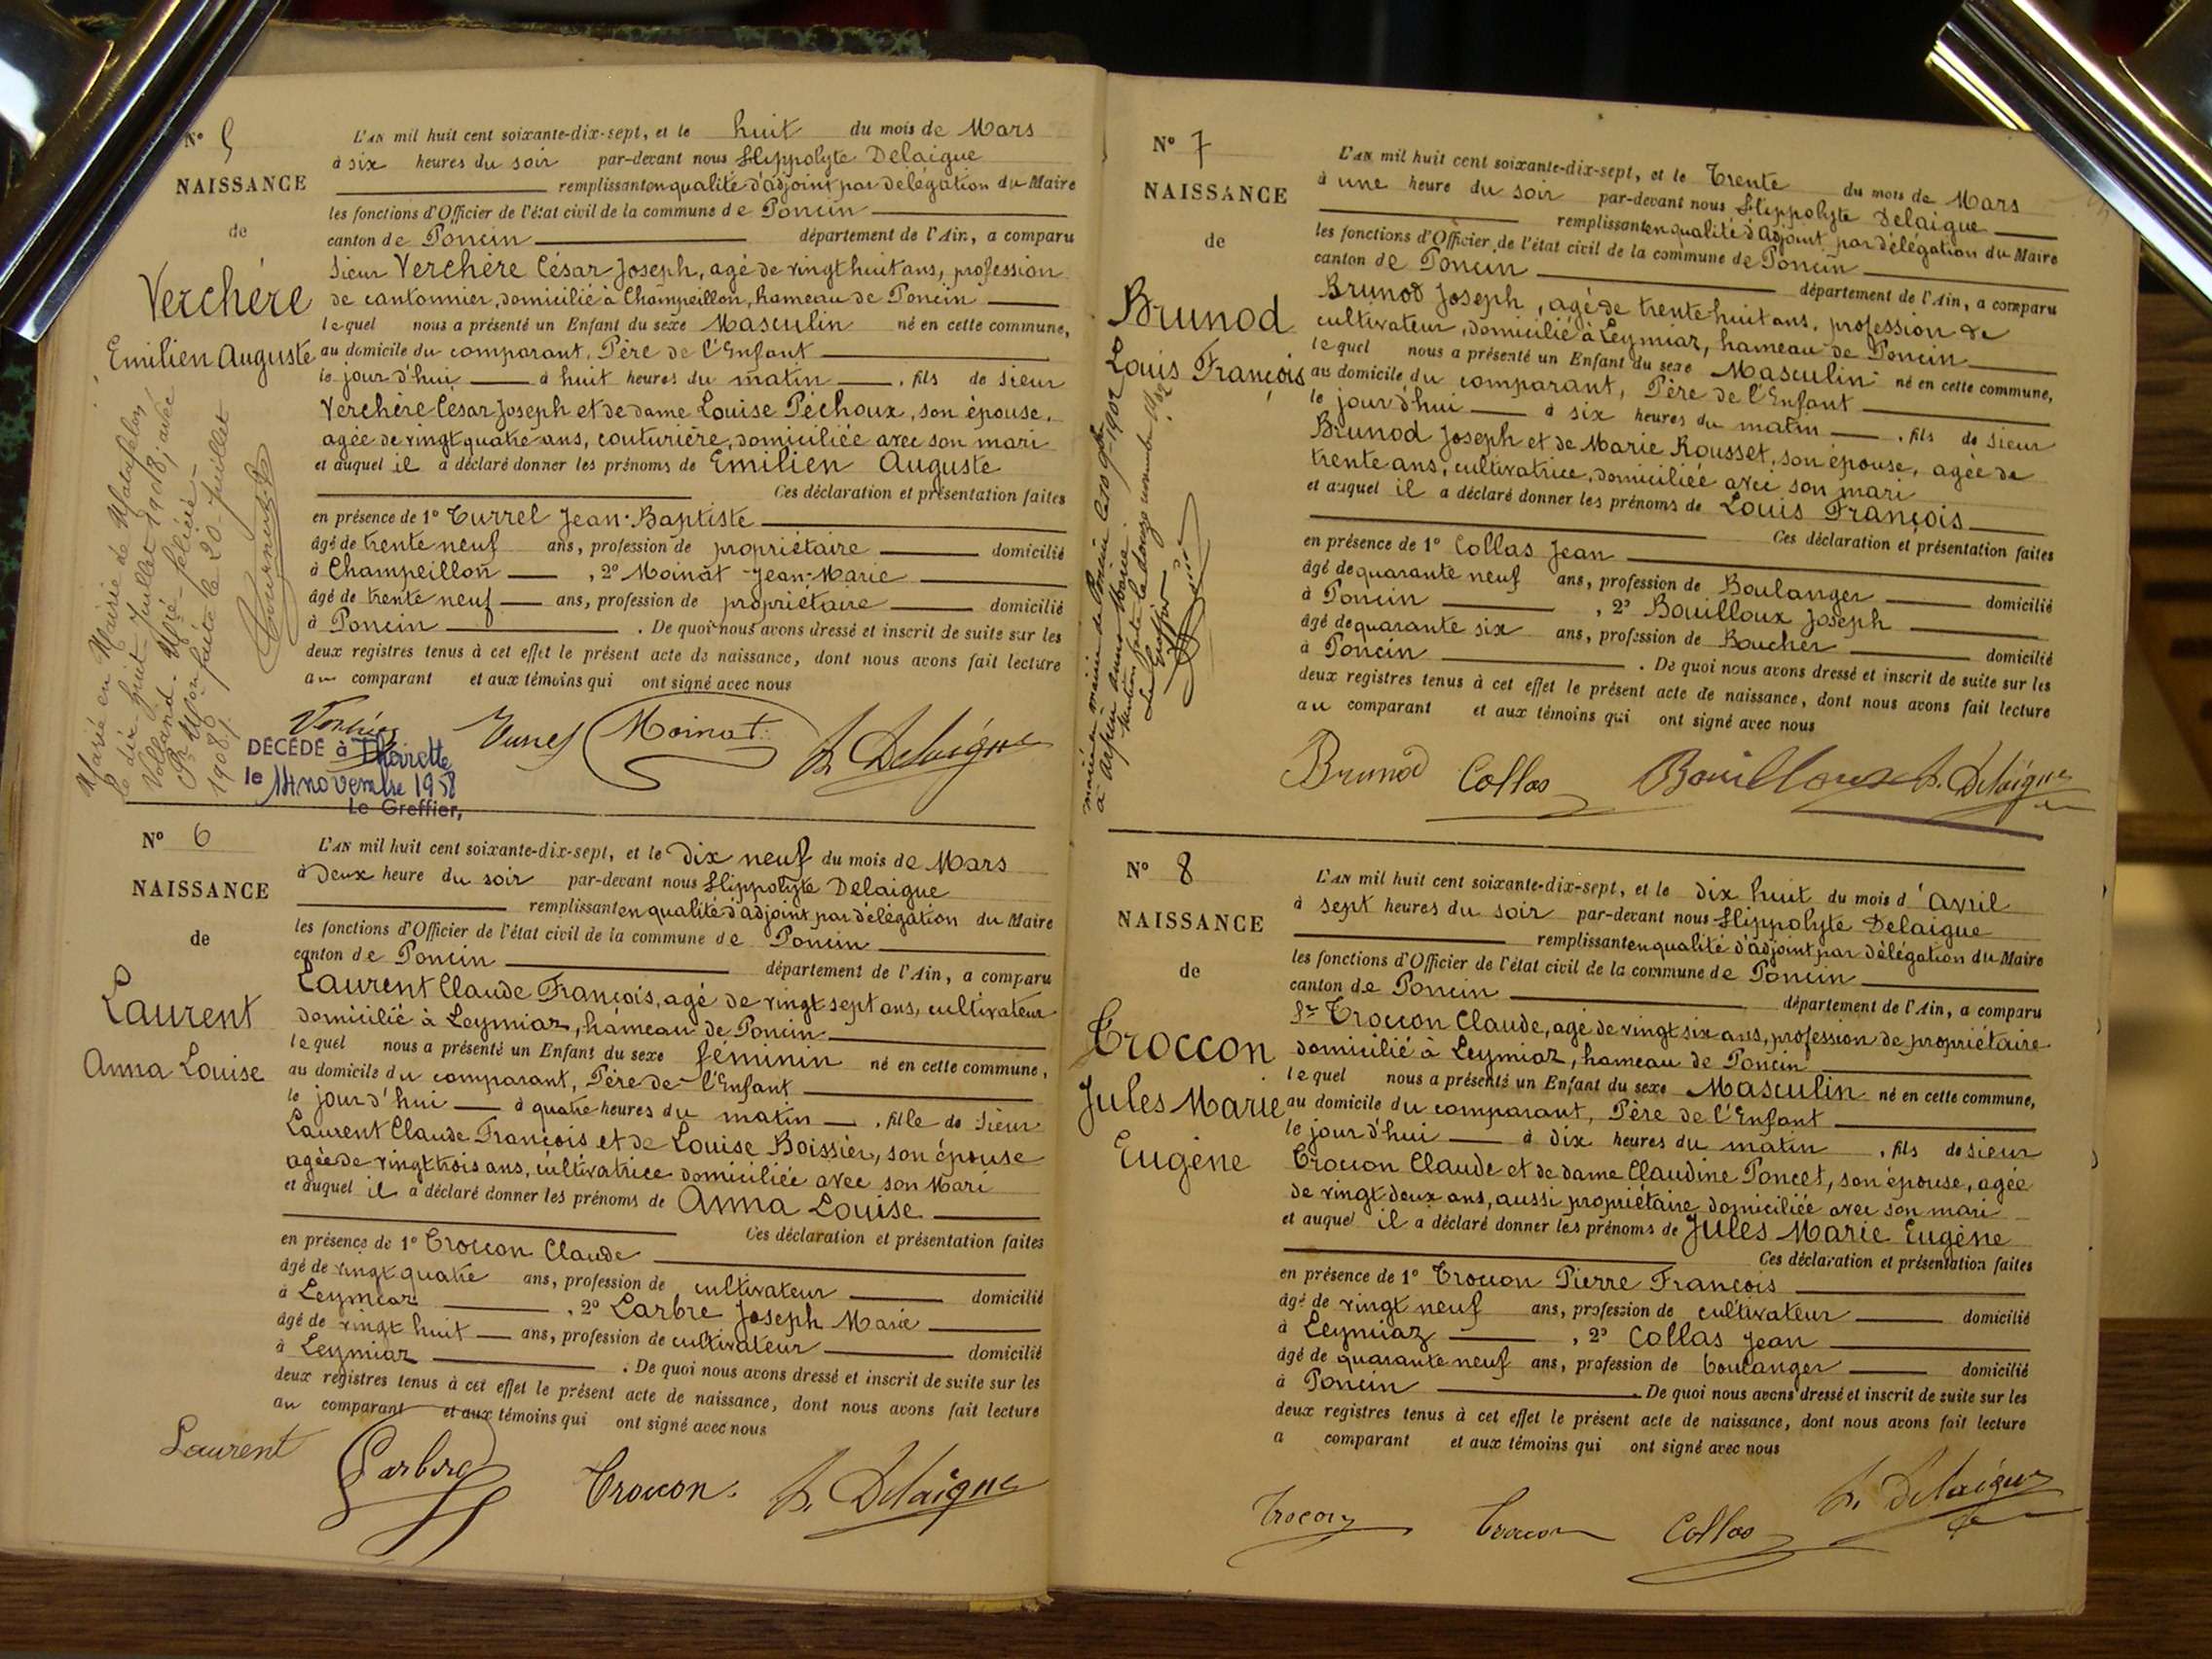 N° 5
NAISSANCE
de
Verchère
Emilien Auguste
L'AN mil huit cent soixante-dix-sept, et le huit du mois de Mars
à six heures du soir par-devant nous Hippolyte Delaigue
remplissant en qualité d'adjoint par délégation du Maire
les fonctions d'Officier de l'état civil de la commune de Poncin
canton de Poncin département de l'Ain, a comparu
Sieur Verchère César Joseph, agé de vingt huit ans, profession
de cantonnier, domicilié à Champeillon, hameau de Poncin
lequel nous a présenté un Enfant du sexe Masculin né en cette commune,
au domicile du comparant, Père de l'Enfant
le jour d'hui à huit heures du matin , fils de Sieur
Verchère César Joseph et de dame Louise Péchoux, son épouse,
agée de vingt quatre ans, couturière, domiciliée avec son mari
et auquel il a déclaré donner les prénoms de Emilien Auguste
Ces déclaration et présentation faites
en présence de 1° Turrel Jean-Baptiste
âgé de trente neuf ans, profession de propriétaire domicilié
à Champeillon , 2° Moinat Jean-Marie
âgé de trente neuf ans, profession de propriétaire domicilié
à Poncin . De quoi nous avons dressé et inscrit de suite sur les
deux registres tenus à cet effet le présent acte de naissance, dont nous avons fait lecture
au comparant et aux témoins qui ont signé avec nous
Marié en Mairie de Matafelon
le dix-huit Juillet 1908, avec
Volland félicie
Pr Mon faite le 20 Juillet
1908
Moinat H. Delaigue
DÉCÉDÉ à Thoirette
le 14 novembre 1958
Le Greffier,
N° 6
NAISSANCE
de
Laurent
Anna Louise
L'AN mil huit cent soixante-dix-sept, et le Dix neuf du mois de Mars
à Deux heure du soir par-devant nous Hippolyte Delaigue
remplissant en qualité d'adjoint par délégation du Maire
les fonctions d'Officier de l'état civil de la commune de Poncin
canton de Poncin département de l'Ain, a comparu
Laurent Claude François, agé de vingt sept ans, cultivateur
domicilié à Leymiaz, hameau de Poncin
lequel nous a présenté un Enfant du sexe féminin né en cette commune,
au domicile du comparant, Père de l'Enfant
le jour d'hui à quatre heures du matin , fille de Sieur
Laurent Claude François et de Louise Boissier, son épouse
agée de vingt trois ans, cultivatrice domiciliée avec son Mari
et auquel il a déclaré donner les prénoms de Anna Louise
Ces déclaration et présentation faites
en présence de 1° Troccon Claude
âgé de vingt quatre ans, profession de cultivateur domicilié
à Leymiaz , 2° Larbre Joseph Marie
âgé de vingt huit ans, profession de cultivateur domicilié
à Leymiaz . De quoi nous avons dressé et inscrit de suite sur les
deux registres tenus à cet effet le présent acte de naissance, dont nous avons fait lecture
au comparant et aux témoins qui ont signé avec nous
Laurent Larbre Troccon. H. Delaigue
N° 7
NAISSANCE
de
Brunod
Louis François
L'AN mil huit cent soixante-dix-sept, et le Trente du mois de Mars
à une heure du soir par-devant nous Hippolyte Delaigue
remplissant en qualité d'Adjoint par délégation du Maire
les fonctions d'Officier de l'état civil de la commune de Poncin
canton de Poncin département de l'Ain, a comparu
Brunod Joseph, agé de trente huit ans, profession de
cultivateur, domicilié à Leymiaz, hameau de Poncin
lequel nous a présenté un Enfant du sexe Masculin né en cette commune,
au domicile du comparant, Père de l'Enfant
le jour d'hui à six heures du matin , fils de Sieur
Brunod Joseph et de Marie Rousset, son épouse, agée de
trente ans, cultivatrice, domiciliée avec son mari
et auquel il a déclaré donner les prénoms de Louis François
Ces déclaration et présentation faites
en présence de 1° Collas Jean
âgé de quarante neuf ans, profession de Boulanger domicilié
à Poncin , 2° Bouilloux Joseph
âgé de quarante six ans, profession de Boucher domicilié
à Poncin . De quoi nous avons dressé et inscrit de suite sur les
deux registres tenus à cet effet le présent acte de naissance, dont nous avons fait lecture
au comparant et aux témoins qui ont signé avec nous
1902
Le Greffier
Brunod Collas Bouilloux H. Delaigue
N° 8
NAISSANCE
de
Troccon
Jules Marie
Eugène
L'AN mil huit cent soixante-dix-sept, et le dix huit du mois d'Avril
à sept heures du soir par-devant nous Hippolyte Delaigue
remplissant en qualité d'adjoint par délégation du Maire
les fonctions d'Officier de l'état civil de la commune de Poncin
canton de Poncin département de l'Ain, a comparu
Sr Troccon Claude, agé de vingt six ans, profession de propriétaire
domicilié à Leymiaz, hameau de Poncin
lequel nous a présenté un Enfant du sexe Masculin né en cette commune,
au domicile du comparant, Père de l'Enfant
le jour d'hui à dix heures du matin , fils de sieur
Troccon Claude et de dame Claudine Poncet, son épouse, agée
de vingt deux ans, aussi propriétaire domiciliée avec son mari
et auquel il a déclaré donner les prénoms de Jules Marie Eugène
Ces déclaration et présentation faites
en présence de 1° Troccon Pierre François
âgé de vingt neuf ans, profession de cultivateur domicilié
à Leymiaz , 2° Collas Jean
âgé de quarante neuf ans, profession de boulanger domicilié
à Poncin . De quoi nous avons dressé et inscrit de suite sur les
deux registres tenus à cet effet le présent acte de naissance, dont nous avons fait lecture
a comparant et aux témoins qui ont signé avec nous
Trocon Troccon Collas H. Delaigue